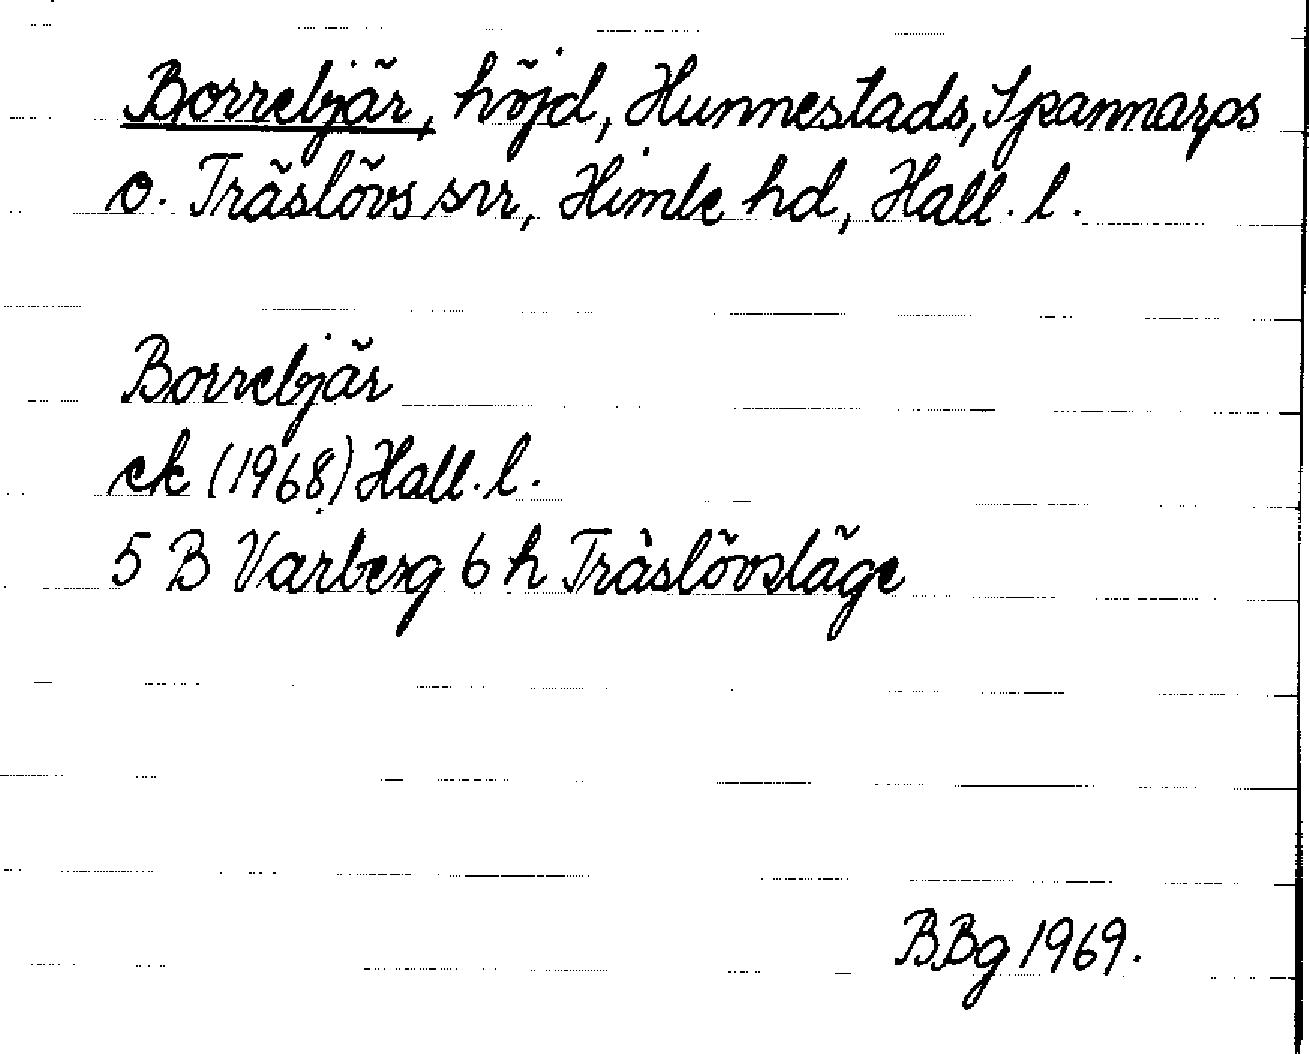 Borrebjär, höjd, Hunnestads, Spannarps
o. Träslövs snr, Himle hd, Hall. l.
Borrebjär
ek (1968) Hall. l.
5 B Varberg 6 h Träslövsläge
BBg 1969.